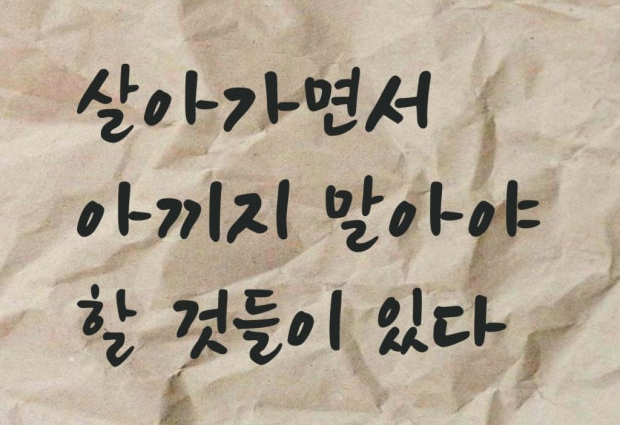 살아가면서
아끼지 말아야
할 것들이 있다